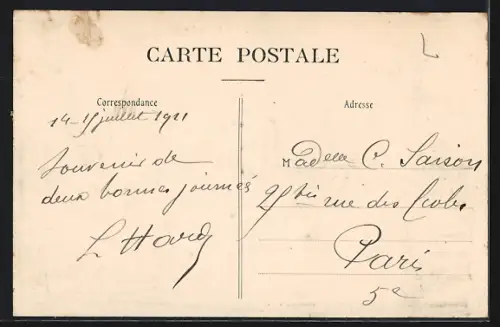 CARTE POSTALE
Correspondance
14-15 juillet 1921
Souvenir de
deux bonnes journées
L Hardy
Adresse
Madelle C. Saison
25bis rue des Ecoles
Paris
5e